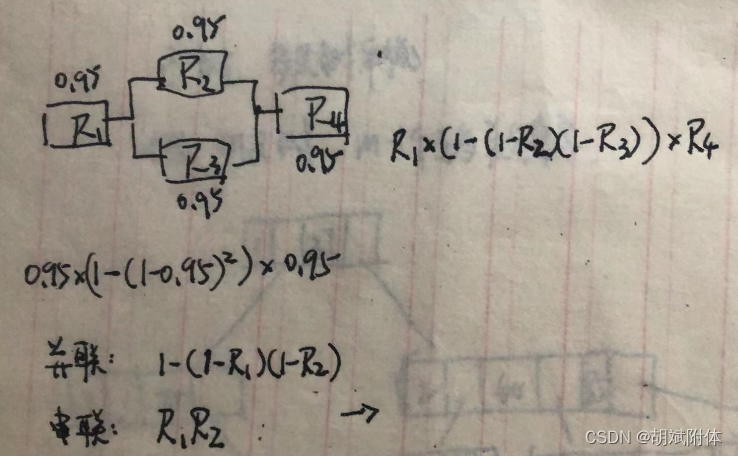 0.95
0.95
R₁
R₂
R₃
R₄
0.95
0.95
R₁×(1-(1-R₂)(1-R₃))×R₄
0.95×(1-(1-0.95)²)×0.95
并联: 1-(1-R₁)(1-R₂)
串联: R₁R₂ →
CSDN @胡斌附体